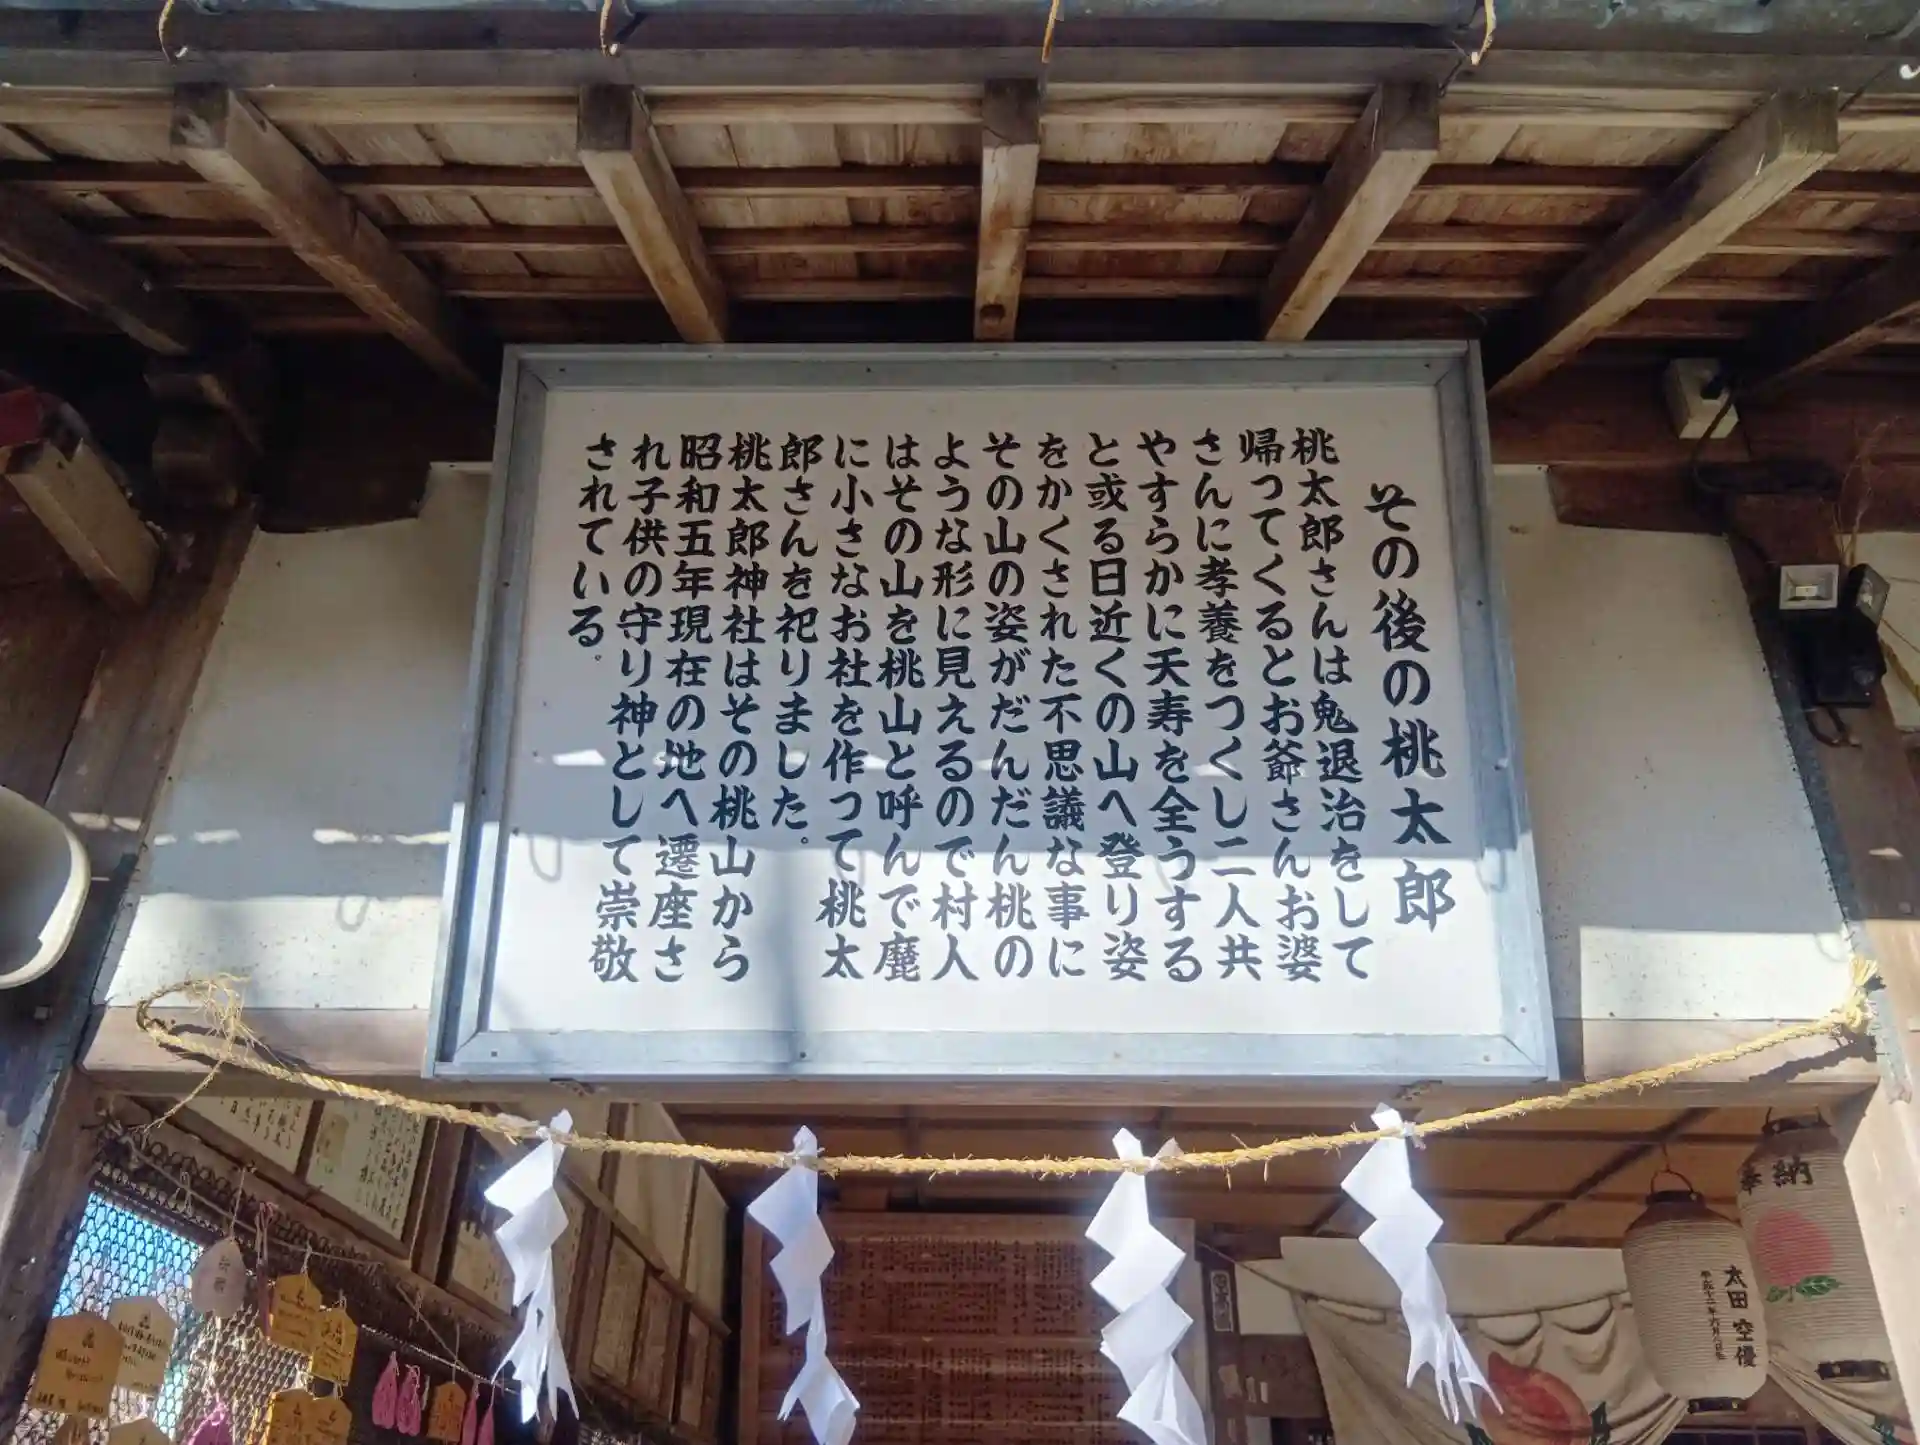 その後の桃太郎
桃太郎さんは鬼退治をして
帰ってくるとお爺さんお婆
さんに孝養をつくし二人共
やすらかに天寿を全うする
と或る日近くの山へ登り姿
をかくされた不思議な事に
その山の姿がだんだん桃の
ような形に見えるので村人
はその山を桃山と呼んで麓
に小さなお社を作って桃太
郎さんを祀りました。
桃太郎神社はその桃山から
昭和五年現在の地へ遷座さ
れ子供の守り神として崇敬
されている.
奉納
太田空優